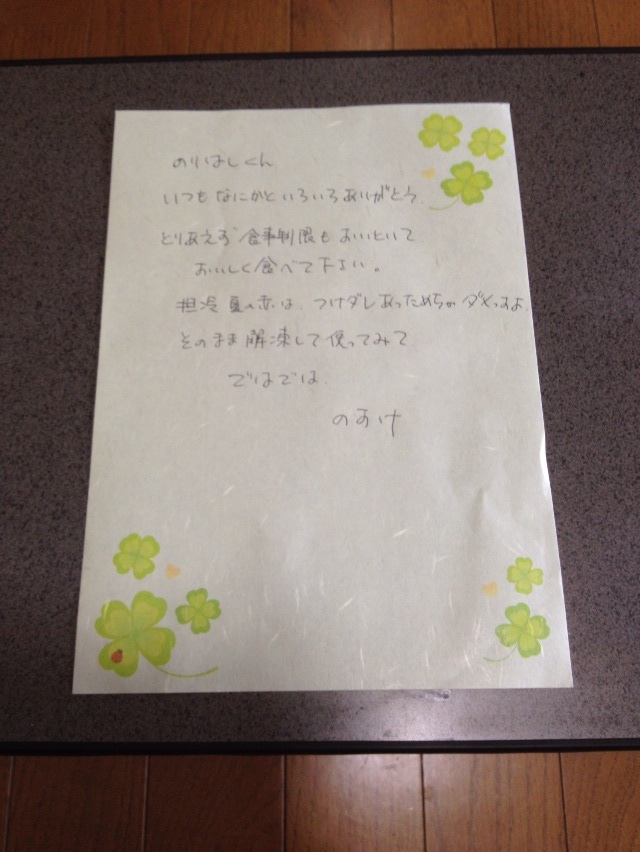 のりはしくん
いつもなにかといろいろありがとう。
とりあえず食事制限もおいといて
おいしく食べて下さい。
担冷夏の赤は、つけダレあっためちゃダメっすよ。
そのまま解凍して使ってみて
ではでは。
のすけ